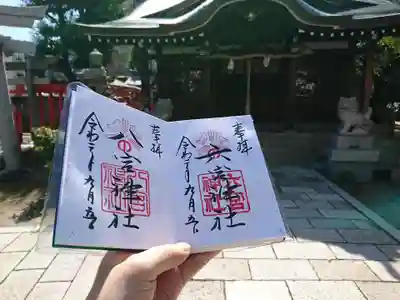 奉拝
六宮神社
令和二年九月五日
奉拝
八宮神社
令和二年九月五日